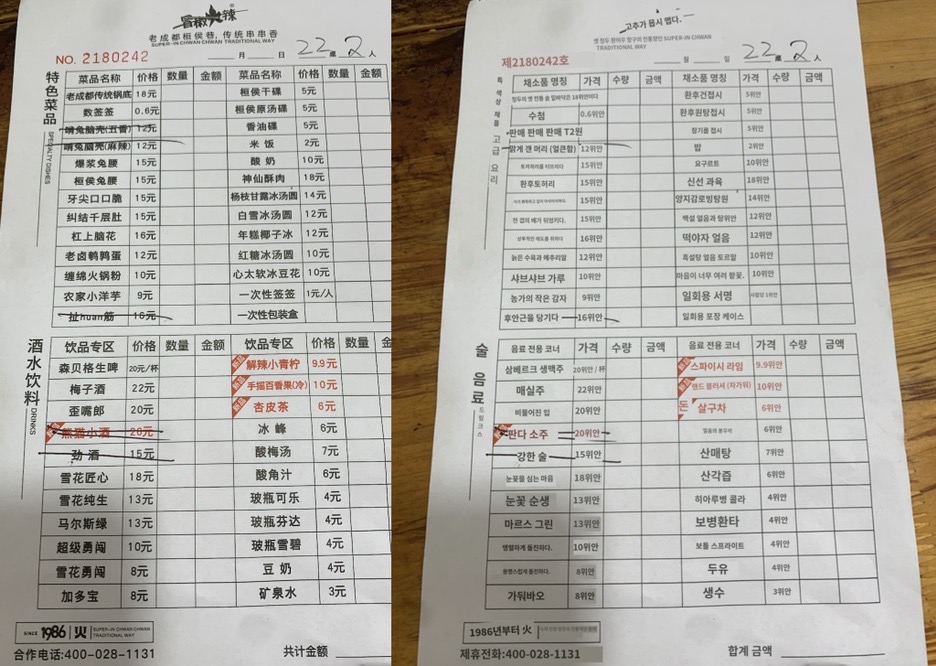 冒椒火辣
老成都桓侯巷,传统串串香
SUPER-IN CHWAN CHWAN TRADITIONAL WAY
NO. 2180242 月 日 22 桌 2 人
特色菜品 SPECIALTY DISHES
菜品名称 价格 数量 金额 菜品名称 价格 数量 金额
老成都传统锅底 18元 桓侯干碟 5元
数签签 0.6元 桓侯原汤碟 5元
啃兔脑壳(五香) 12元 香油碟 5元
啃兔脑壳(麻辣) 12元 米饭 2元
爆浆兔腰 15元 酸奶 10元
桓侯兔腰 15元 神仙酥肉 18元
牙尖口口脆 15元 杨枝甘露冰汤圆 14元
纠结千层肚 15元 白雪冰汤圆 12元
杠上脑花 16元 年糕椰子冰 12元
老卤鹌鹑蛋 12元 红糖冰汤圆 10元
缠绵火锅粉 10元 心太软冰豆花 10元
农家小洋芋 9元 一次性签签 1元/人
扯huan筋 16元 一次性包装盒
酒水饮料 DRINKS
饮品专区 价格 数量 金额 饮品专区 价格 数量 金额
森贝格生啤 20元/杯 解辣小青柠 9.9元
梅子酒 22元 手摇百香果(冷) 10元
歪嘴郎 20元 杏皮茶 6元
熊猫小酒 20元 冰峰 6元
劲酒 15元 酸梅汤 7元
雪花匠心 18元 酸角汁 6元
雪花纯生 13元 玻瓶可乐 4元
马尔斯绿 13元 玻瓶芬达 4元
超级勇闯 10元 玻瓶雪碧 4元
雪花勇闯 8元 豆奶 4元
加多宝 8元 矿泉水 3元
SINCE 1986 火 SUPER-IN CHWAN CHWAN TRADITIONAL WAY
合作电话:400-028-1131 共计金额
고추가 몹시 맵다.
옛 청두 환하우 항구의 전통장인 SUPER-IN CHWAN
TRADITIONAL WAY
제2180242호 월 일 22 桌 2 人
특색상 채품 고급 요리
채소품 명칭 가격 수량 금액 채소품 명칭 가격 수량 금액
18위안이다 환후건접시 5위안
수첨 0.6위안 환후원탕접시 5위안
판매 판매 판매 T2원 참기름 접시 5위안
맑게 갠 머리 (얼큰함) 12위안 밥 2위안
토끼허리를 터뜨리다 15위안 요구르트 10위안
환후토허리 15위안 신선 과육 18위안
15위안 양지감로빙탕원 14위안
천 겹의 배가 뒤엉키다. 15위안 백설 얼음과 탕위안 12위안
16위안 떡야자 얼음 12위안
늙은 수육과 메추리알 12위안 흑설탕 얼음 토르말 10위안
샤브샤브 가루 10위안 마음이 너무 여려 팥꽃. 10위안
농가의 작은 감자 9위안 일회용 서명 사람당 1위안
후안근을 당기다 16위안 일회용 포장 케이스
술 음료 드링크스
음료 전용 코너 가격 수량 금액 음료 전용 코너 가격 수량 금액
삼베르크 생맥주 20위안 / 杯 스파이시 라임 9.9위안
매실주 22위안 핸드 플러셔 (차가워) 10위안
비뚤어진 입 20위안 돈 살구차 6위안
판다 소주 20위안 얼음의 봉우리 6위안
강한 술 15위안 산매탕 7위안
눈꽃을 심는 마음 18위안 산각즙 6위안
눈꽃 순생 13위안 히아루병 콜라 4위안
마르스 그린 13위안 보병환타 4위안
맹렬하게 돌진하다. 10위안 보틀 스프라이트 4위안
돌진하다. 8위안 두유 4위안
가둬바오 8위안 생수 3위안
1986년부터 火
제휴전화:400-028-1131 합계 금액